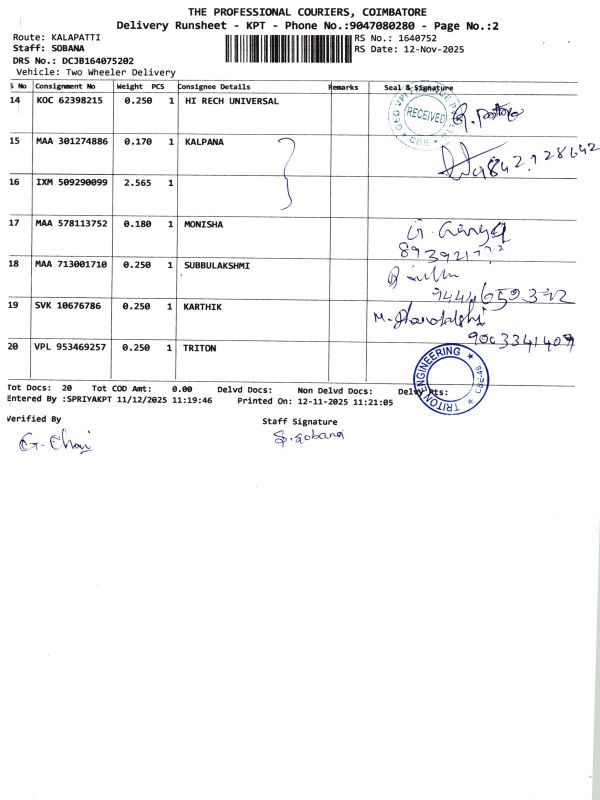 THE PROFESSIONAL COURIERS, COIMBATORE
Delivery Runsheet - KPT - Phone No.:9047080280 - Page No.:2
Route: KALAPATTI RS No.: 1640752
Staff: SOBANA RS Date: 12-Nov-2025
DRS No.: DCJB164075202
Vehicle: Two Wheeler Delivery
S No Consignment No Weight PCS Consignee Details Remarks Seal & Signature
14 KOC 62398215 0.250 1 HI RECH UNIVERSAL
RECEIVED
15 MAA 301274886 0.170 1 KALPANA
9842128642
16 IXM 509290099 2.565 1
17 MAA 578113752 0.180 1 MONISHA
18 MAA 713001710 0.250 1 SUBBULAKSHMI
19 SVK 10676786 0.250 1 KARTHIK
20 VPL 953469257 0.250 1 TRITON
TRITON ENGINEERING
Tot Docs: 20 Tot COD Amt: 0.00 Delvd Docs: Non Delvd Docs: Delvy Pts:
Entered By :SPRIYAKPT 11/12/2025 11:19:46 Printed On: 12-11-2025 11:21:05
Verified By Staff Signature
S. Sobana